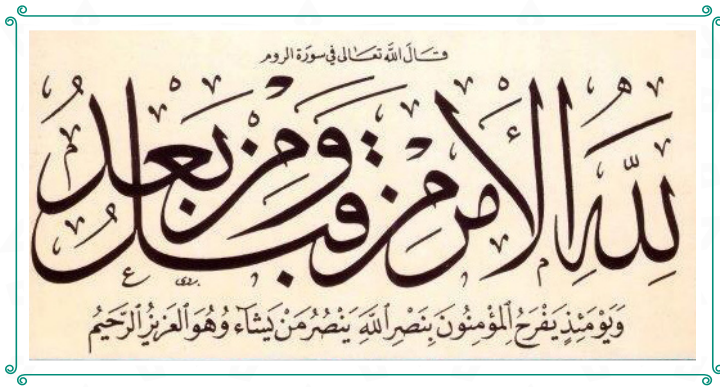 قَالَ اللَّه تَعَالى في سورَة الروم
لِلَّهِ الْأَمْرُ مِنْ قَبْلُ وَمِنْ بَعْدُ
وَيَوْمَئِذٍ يَفْرَحُ الْمُؤْمِنُونَ بِنَصْرِ اللَّهِ يَنْصُرُ مَنْ يَشَاءُ وَهُوَ الْعَزِيزُ الرَّحِيمُ